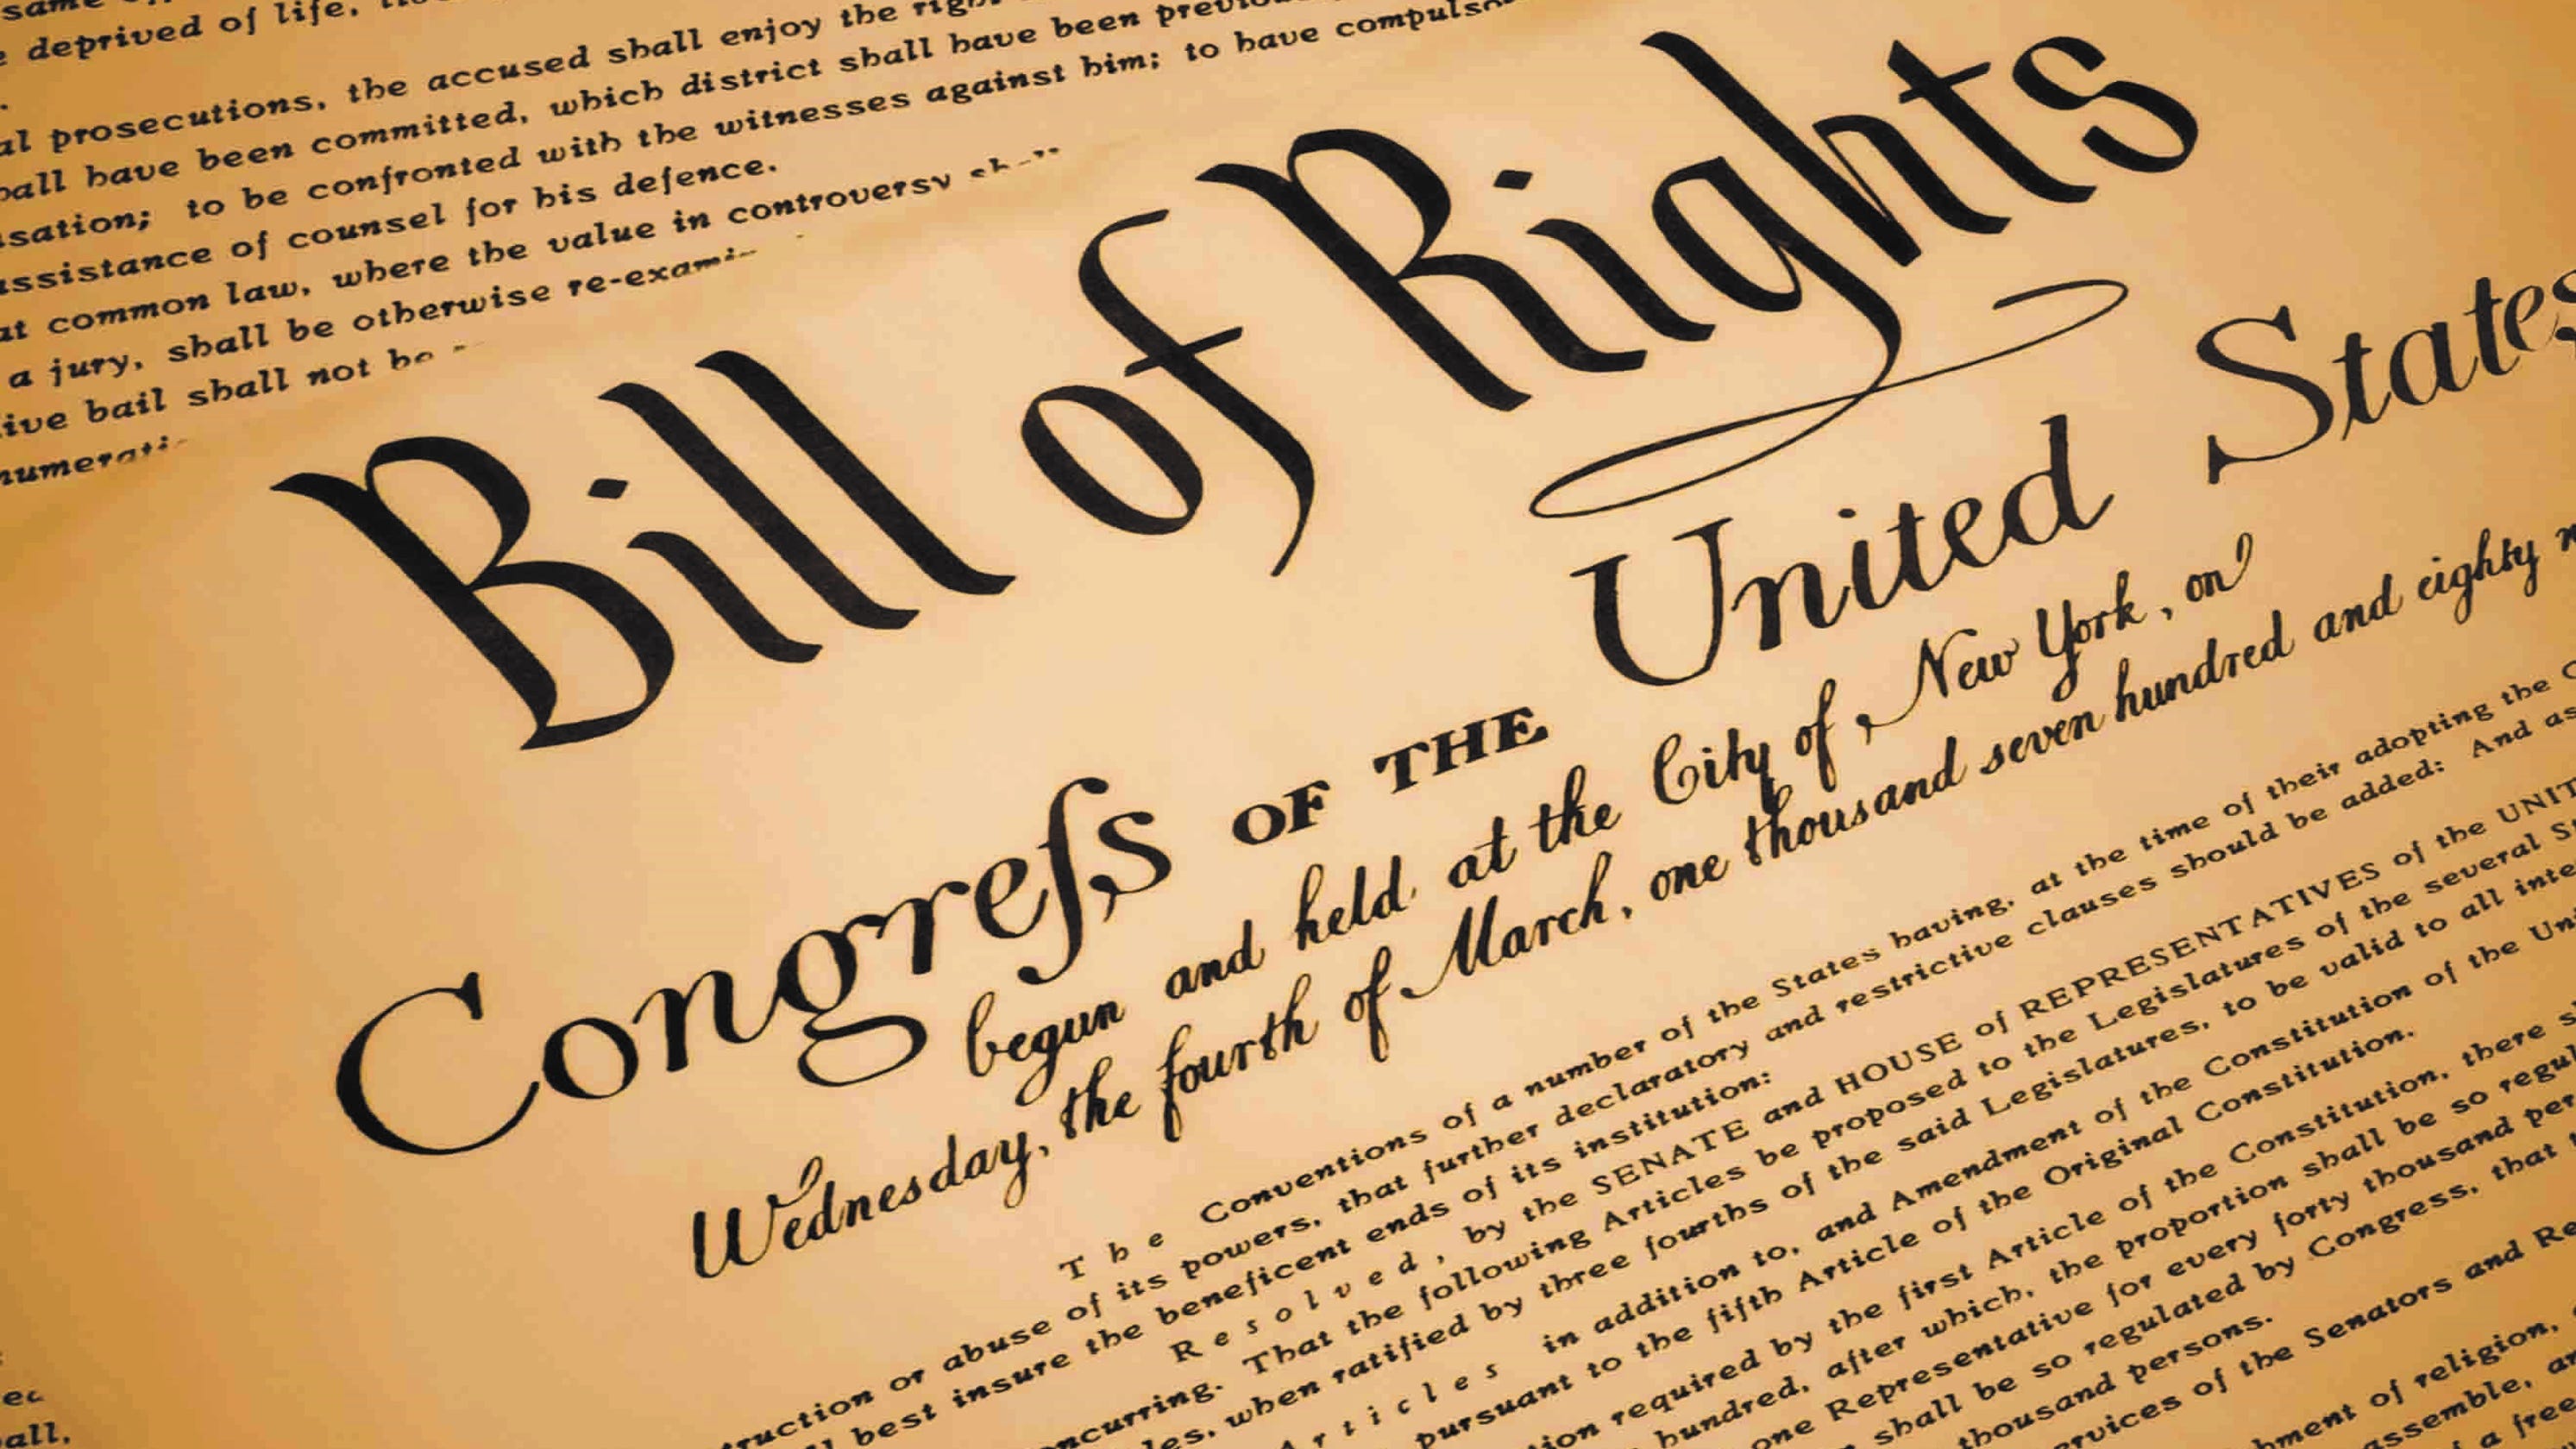 same
deprived of life,
prosecutions, the accused shall enjoy the
have been committed, which district shall have been
to be confronted with the witnesses against him; to have
assistance of counsel for his defence.
common law, where the value in controversy
a jury, shall be otherwise
bail shall not
Bill of Rights
Congreſs OF THE United States
begun and held at the City of New York, on
Wednesday, the fourth of March, one thousand seven hundred and eighty
The Conventions of a number of the States having, at the time of their adopting the
or abuse of its powers, that further declaratory and restrictive clauses should be added: And as
best insure the beneficent ends of its institution:
Resolved, by the SENATE and HOUSE of REPRESENTATIVES of the
That the following Articles be proposed to the Legislatures of the several
when ratified by three fourths of the said Legislatures, to be valid to all
in addition to, and Amendment of the Constitution of the
pursuant to the fifth Article of the Original Constitution.
required by the first Article of the Constitution, there
hundred, after which, the proportion shall be so
one Representative for every forty thousand
shall be so regulated by Congress, that
thousand persons.
of the Senators and
of religion,
assemble,
a free